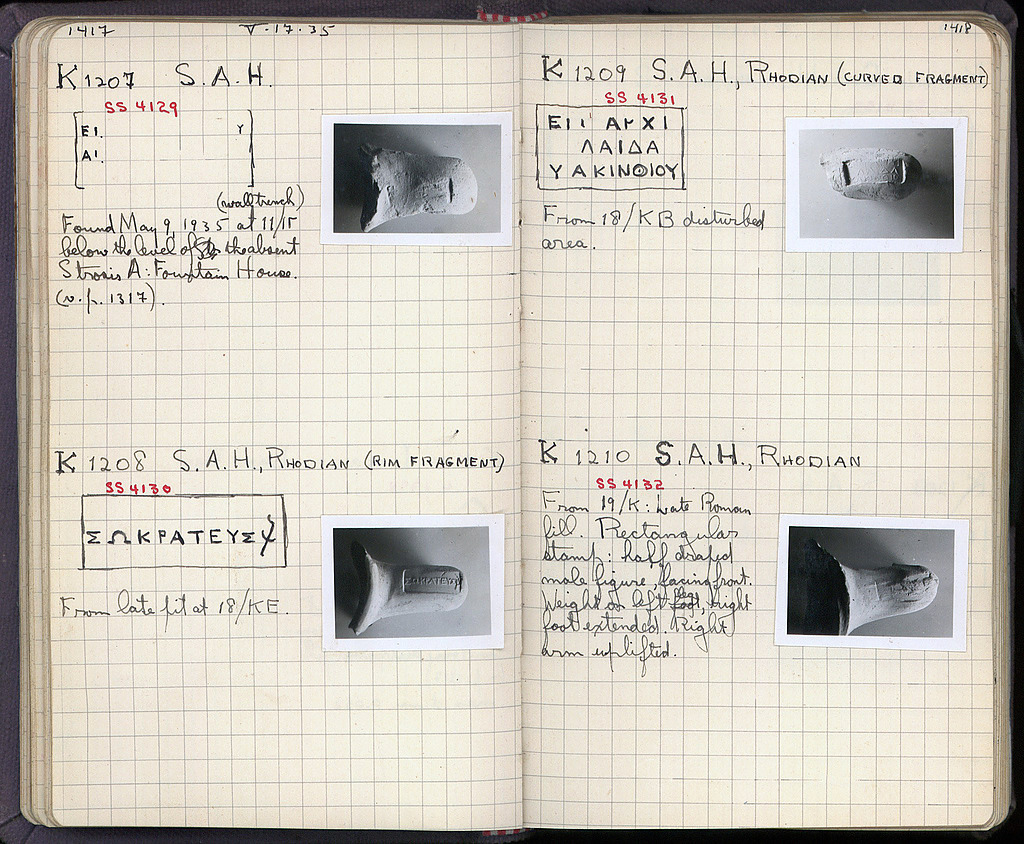 1417 V·17·35
K 1207 S.A.H.
SS 4129
ΕΙ. Υ
ΑΙ.
(wall trench)
Found May 9, 1935 at 11/ΙΓ
below the level of the absent
Strosis A: Fountain House.
(v. p. 1317).
K 1208 S.A.H., RHODIAN (RIM FRAGMENT)
SS 4130
ΣΩΚΡΑΤΕΥΣ
From late pit at 18/ΚΕ.
1418
K 1209 S.A.H., RHODIAN (CURVED FRAGMENT)
SS 4131
ΕΠΙ ΑΡΧΙ
ΛΑΙΔΑ
ΥΑΚΙΝΘΙΟΥ
From 18/ΚΒ disturbed
area.
K 1210 S.A.H., RHODIAN
SS 4132
From 19/Κ: Late Roman
fill. Rectangular
stamp: half draped
male figure, facing front.
Weight on left leg, right
foot extended. Right
arm uplifted.